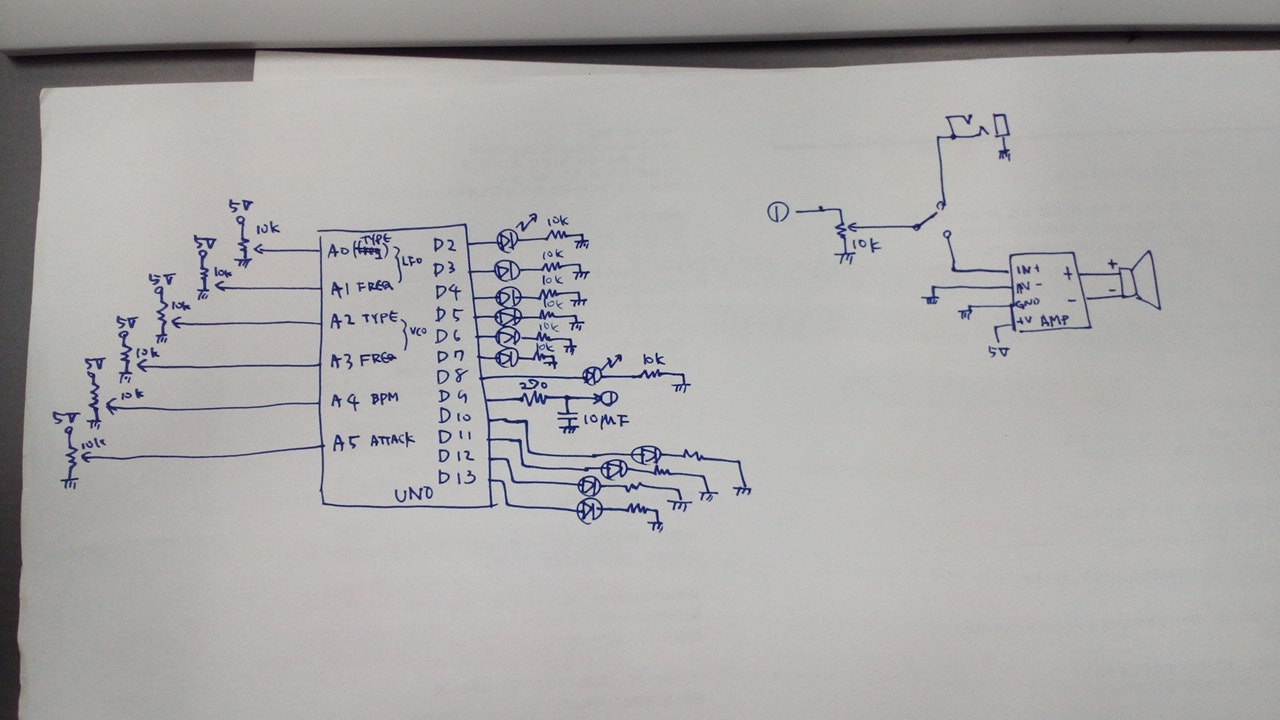 5V
10k
5V
10k
5V
10k
5V
10k
5V
10k
5V
10k
A0 TYPE
A1 FREQ
LFO
A2 TYPE
A3 FREQ
VCO
A4 BPM
A5 ATTACK
UNO
D2
D3
D4
D5
D6
D7
D8
D9
D10
D11
D12
D13
10k
10k
10k
10k
10k
10k
10k
10μF
1
1
10k
IN+
IN-
GND
+V AMP
+
-
+
-
5V